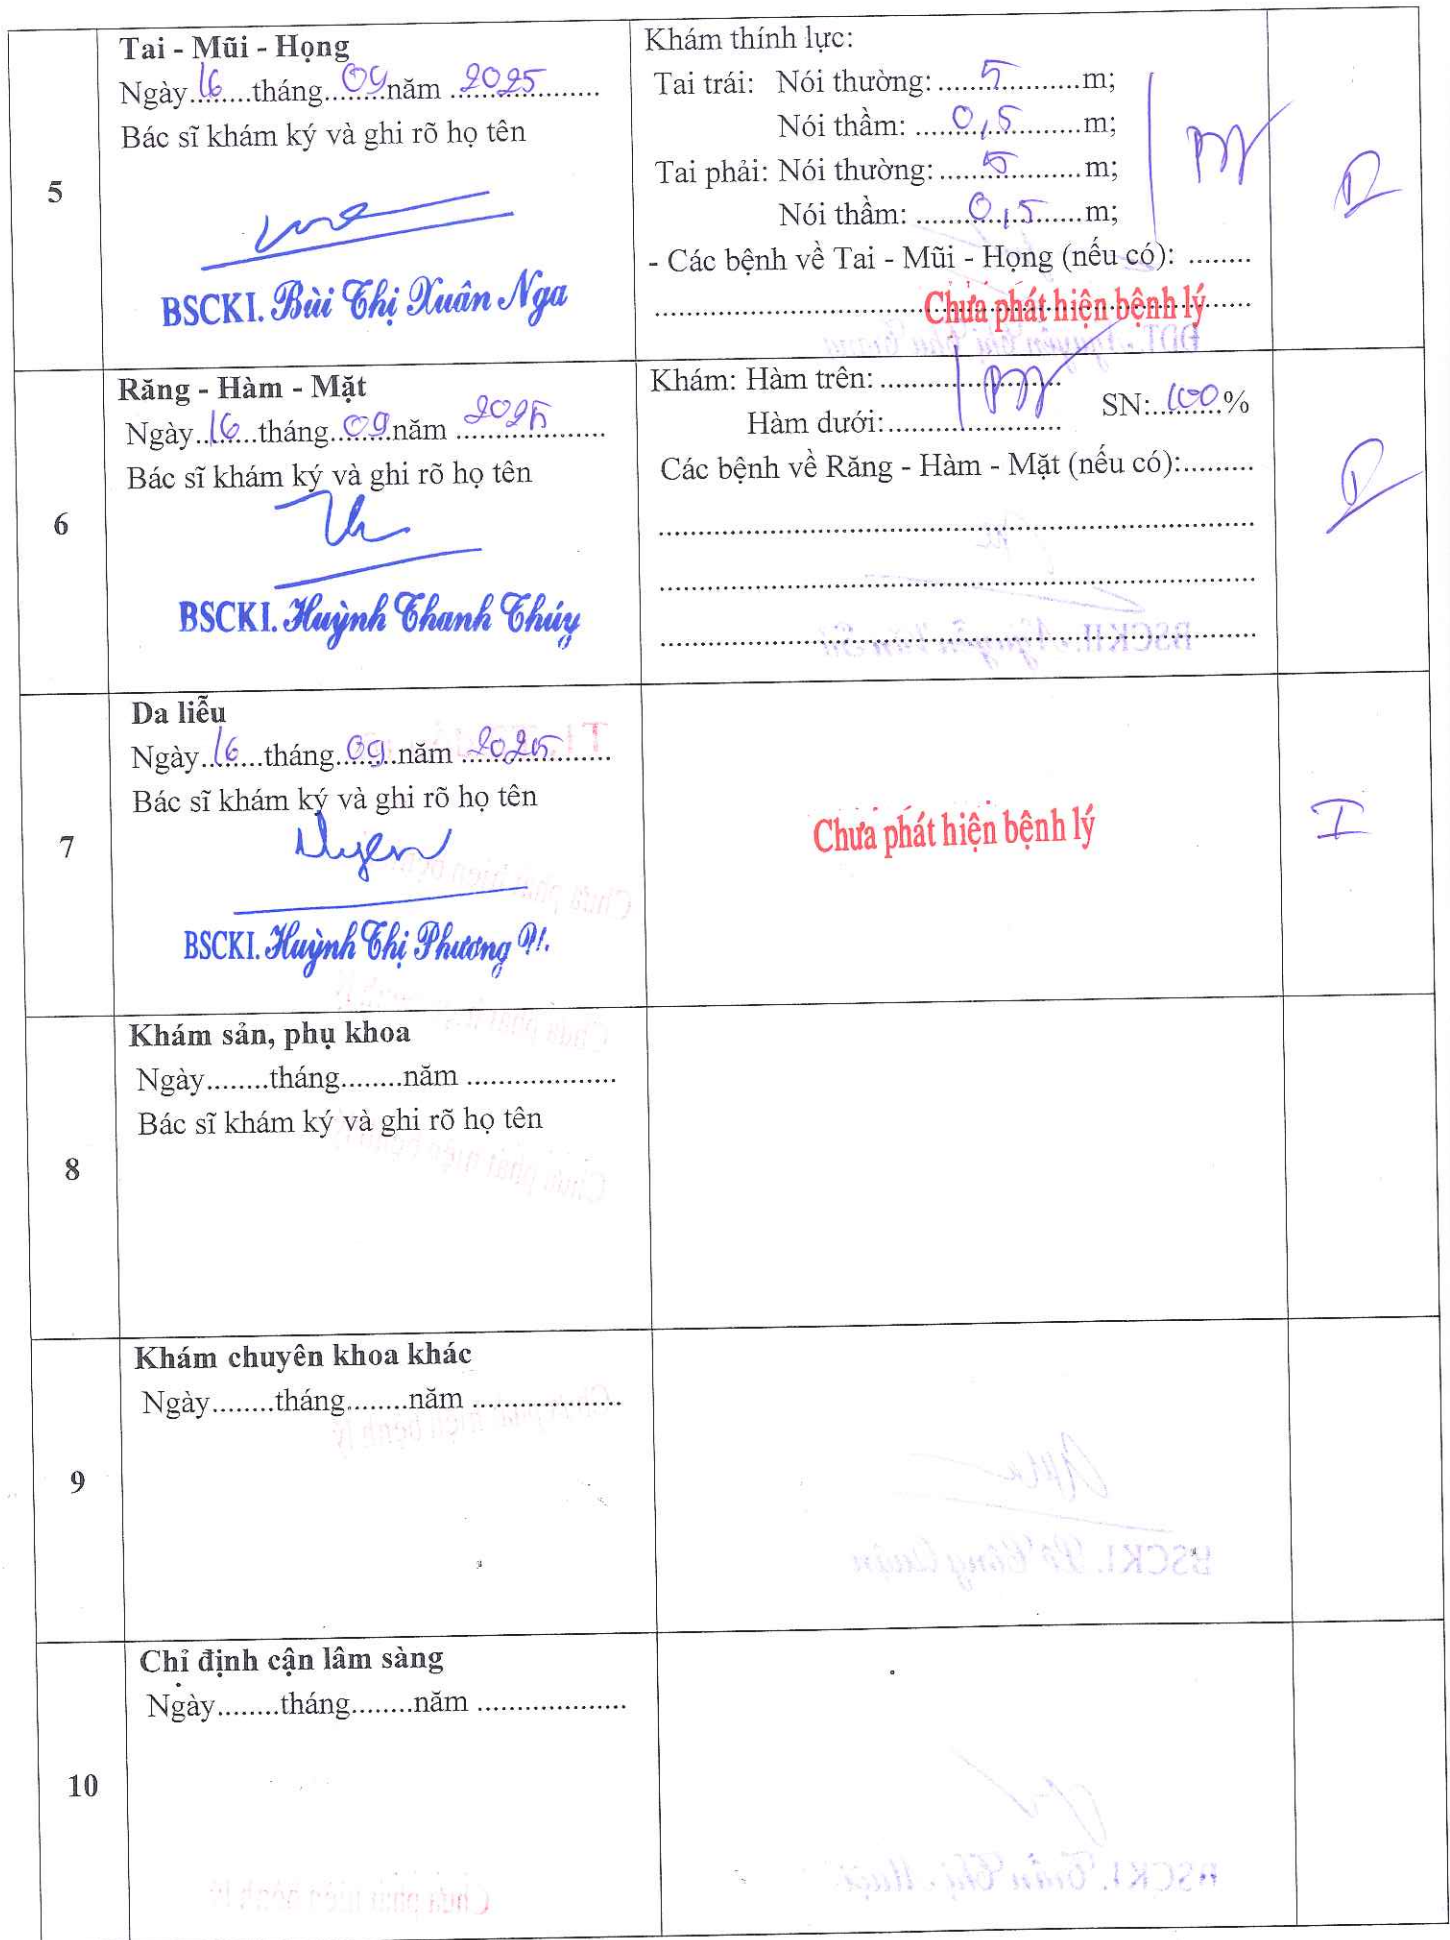 5
Tai - Mũi - Họng
Ngày 16 tháng 09 năm 2025
Bác sĩ khám ký và ghi rõ họ tên
BSCKI. Bùi Thị Xuân Nga
Khám thính lực:
Tai trái: Nói thường: 5 m;
Nói thầm: 0,5 m;
Tai phải: Nói thường: 5 m;
Nói thầm: 0,5 m;
- Các bệnh về Tai - Mũi - Họng (nếu có): ........
Chưa phát hiện bệnh lý
6
Răng - Hàm - Mặt
Ngày 16 tháng 09 năm 2025
Bác sĩ khám ký và ghi rõ họ tên
BSCKI. Huỳnh Thanh Thúy
Khám: Hàm trên:
Hàm dưới:
SN: 100 %
Các bệnh về Răng - Hàm - Mặt (nếu có):.........
7
Da liễu
Ngày 16 tháng 09 năm 2025
Bác sĩ khám ký và ghi rõ họ tên
BSCKI. Huỳnh Thị Phương
Chưa phát hiện bệnh lý
I
8
Khám sản, phụ khoa
Ngày........tháng........năm ...................
Bác sĩ khám ký và ghi rõ họ tên
9
Khám chuyên khoa khác
Ngày........tháng........năm ...................
10
Chỉ định cận lâm sàng
Ngày........tháng........năm ...................